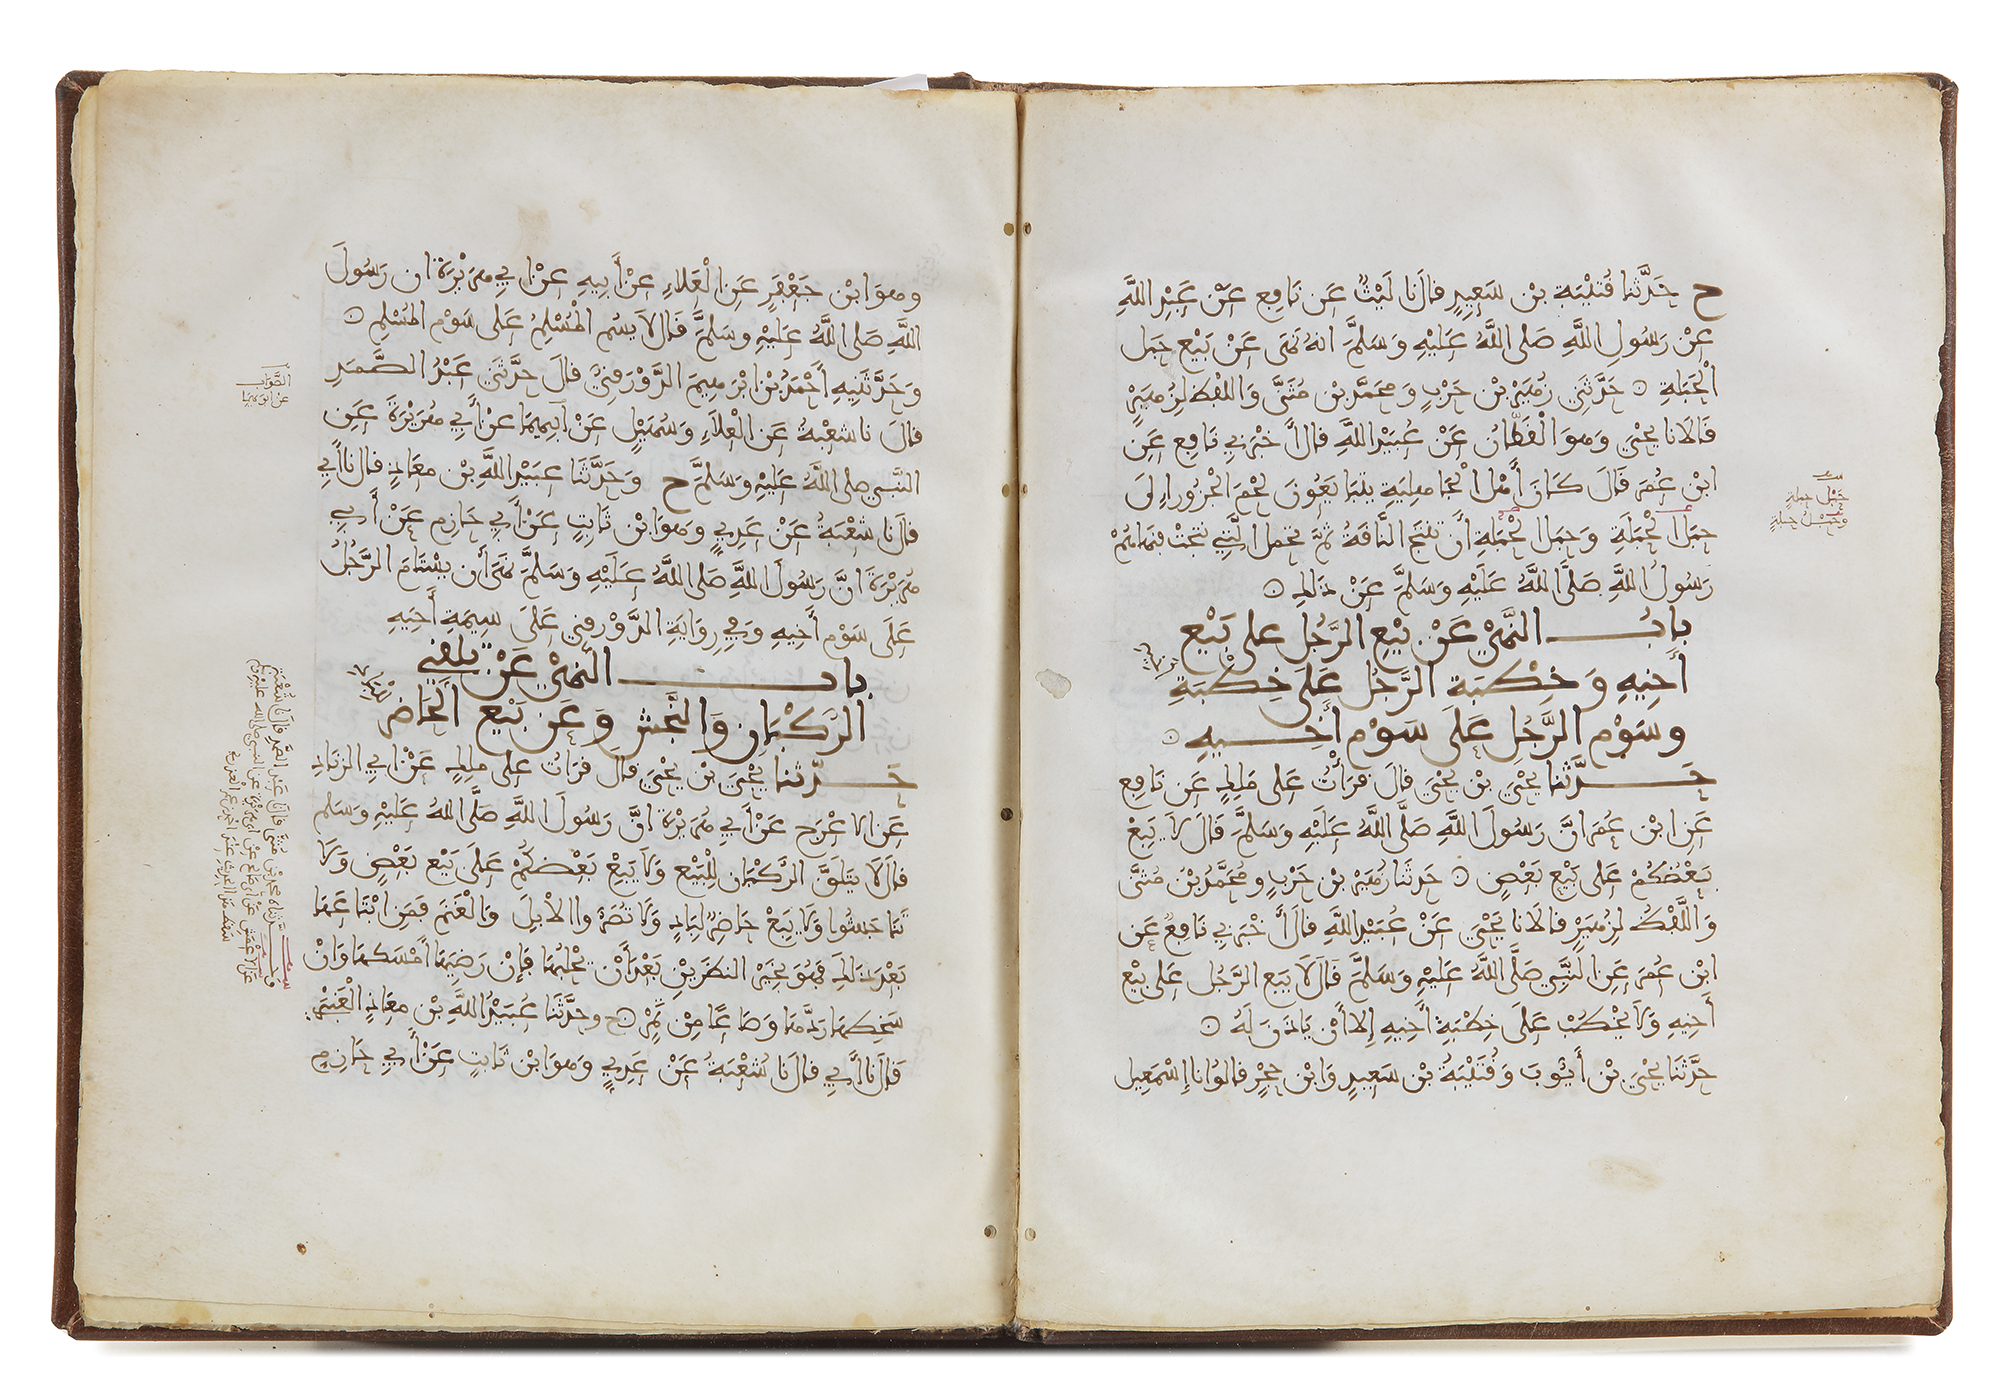 ح حَدَّثنا قُتَيْبَة بْن سَعِيدٍ قالَ نا لَيْثٌ عَن نَافِع عَنْ عَبْدِ اللَّهِ
عَنْ رَسُولِ اللَّهِ صَلى اللَّهُ عَلَيْهِ وَسَلمَّ انهُ نَهَى عَنْ بَيْع حَبَل
الْحَبَلةِ ۞ حَدَّثنِي زُهَيْرُ بْن حَرْبٍ وَمحمَّد بْن مُثنَّى وَاللفْظ لِزُهَيْرٍ
قَالَا نا يَحْيَى وَهوَ الْقَطَّانُ عَنْ عُبَيْدِ اللَّهِ قالَ أَخْبَرنِي نَافِع عَنِ
ابْنِ عُمَرَ قَالَ كَانَ أَهْل الْجَاهلِيَةِ يتبَايَعُونَ لَحْمَ الْجَزُورِ إِلىَ
حَبَلِ الْحَبَلَةِ وَحَبَل الْحَبَلةِ أنْ تنْتَجَ النَّاقَةُ ثمَّ تحمل الَّتِي نتِجَتْ فنهَاهُمْ
رَسُولُ اللَّهِ صَلَّى اللَّهُ عَلَيْهِ وَسَلمَّ عَنْ ذلكَ ۞
بابُ النَّهْيُ عَنْ بَيْعِ الرَّجُل على بَيْع
أخِيهِ وَخِطْبَة الرَّجُل عَلَى خِطْبَةِ
وسَوْم الرَّجُلِ عَلَى سَوْم أَخِيهِ ۞
حَدَّثَنا يَحْيَى بْن يَحْيَى قالَ قرَأْتُ عَلى مَالِكٍ عَن نَافِع
عَنِ ابْن عُمَرَ انَّ رَسُولَ اللَّهِ صَلَّى اللَّهُ عَلَيْهِ وَسَلمَّ قَالَ لَا يَبِعْ
بَعْضُكُمْ عَلَى بَيْع بَعْضٍ ۞ حَدثنَا زُهَيْرُ بْن حَرْبٍ وَمُحَمَّدُ بْنُ مُثنَّى
وَاللَّفْظُ لِزُهَيْرٍ قالَا نا يَحْيَى عَنْ عُبَيْدِ اللَّهِ قالَ أَخْبَرنِي نَافِعٌ عَنِ
ابْن عُمَرَ عَنِ النَّبِيِّ صَلَّى اللَّهُ عَلَيْهِ وَسَلمَّ قَالَ لَا يَبعِ الرَّجُل عَلى بَيْع
أَخِيهِ وَلا يَخْطُبْ عَلَى خِطْبَةِ أَخِيهِ إِلا أنْ يَاذَنَ لَهُ ۞
حَدَّثنَا يَحْيَى بْن أَيُّوبَ وَقُتَيْبَةُ بْن سَعِيدٍ وَابْن حُجْرٍ قالُوا نا إِسْمَعِيل
حَبَل حبلة
وحَبْلُ حبلةٍ
وهوَ ابْن جَعْفَرٍ عَنِ الْعَلاءِ عَنْ أبِيهِ عَنْ ابِي هرَيْرَةَ ان رَسُولَ
اللَّهِ صَلى اللَّهُ عَلَيْهِ وَسَلمَّ قَالَ لَا يَسُمِ الْمُسْلِمُ عَلى سَوْم الْمُسْلِمِ ۞
وَحَدَّثَنِيهِ أَحْمَدُ بْن ابْرَهِيمَ الدَّوْرَقِيُّ قالَ حَدَّثَنِي عَبْدُ الصَّمَدِ
قالَ نا شعْبَةُ عَنِ العَلاءِ وَسُهَيْلٍ عَنْ ابِيهِمَا عنْ أَبِي هُرَيْرَةَ عَنِ
النَّبِي صلى اللَّهُ عَلَيْهِ وَسَلمَّ ح وَحَدَّثَنَا عبَيْد اللَّهِ بْن معَاذٍ قالَ نا أَبِي
قالَ نا شعْبَةُ عَنْ عَدِيٍّ وَهوَ ابْن ثَابِتٍ عَنْ أَبِي حَازِم عَنْ أَبِي
هُرَيْرَةَ انَّ رَسُولَ اللَّهِ صَلى اللَّهُ عَلَيْهِ وَسَلمَّ نَهَى أن يسْتَامَ الرَّجُلُ
عَلَى سَوْم أَخِيهِ وَفِي رِوَايَةِ الدَّوْرَقِي عَلَى سِيمَةِ أَخِيهِ
بابُ النَّهْيُ عَنْ تلَقِّي
الرُّكْبَان وَالنَّجْشِ وَعَنْ بَيْع الْحَاضِرِ
حَدَّثَنا يَحْيَى بْن يَحْيَى قَالَ قرَاتُ عَلى مَالِكٍ عَنْ ابِي الزنَادِ
عَنِ الاعْرَجِ عَنْ أَبِي هُرَيْرَة انَّ رَسُولَ اللَّهِ صَلَّى اللهُ عَلَيْهِ وَسَلم
قالَ لَا يتلَقَّى الرُّكْبَان لِلْبَيْع وَلَا يَبِعْ بَعْضكُمْ عَلَى بَيْع بَعْضٍ وَلَا
تنَاجَشُوا وَلَا يَبِعْ حَاضِرٌ لِبَادٍ وَلَا تُصَرُّوا الْإِبِلَ وَالْغَنَمَ فَمَنِ ابْتَاعَهَا
بَعْدَ ذَلكَ فَهُوَ بِخَيْرِ النظَرَيْنِ بَعْدَ أَنْ يَحْلبَهَا فَإِنْ رَضِيَهَا أَمْسَكهَا وَانْ
سَخِطهَا رَدَّهَا وَصَاعًا مِنْ تَمْرٍ ۞ ح وَحدَّثَنَا عُبَيْدُ اللَّهِ بْن معَاذٍ الْعَنْبَرِيُّ
قَالَ نا أَبِي قالَ نا شُعْبَةُ عَنْ عَدِيٍّ وَهوَ ابْن ثَابِتٍ عَنْ أَبِي حَازِمٍ
الصَّوَاب
عن ابويهما